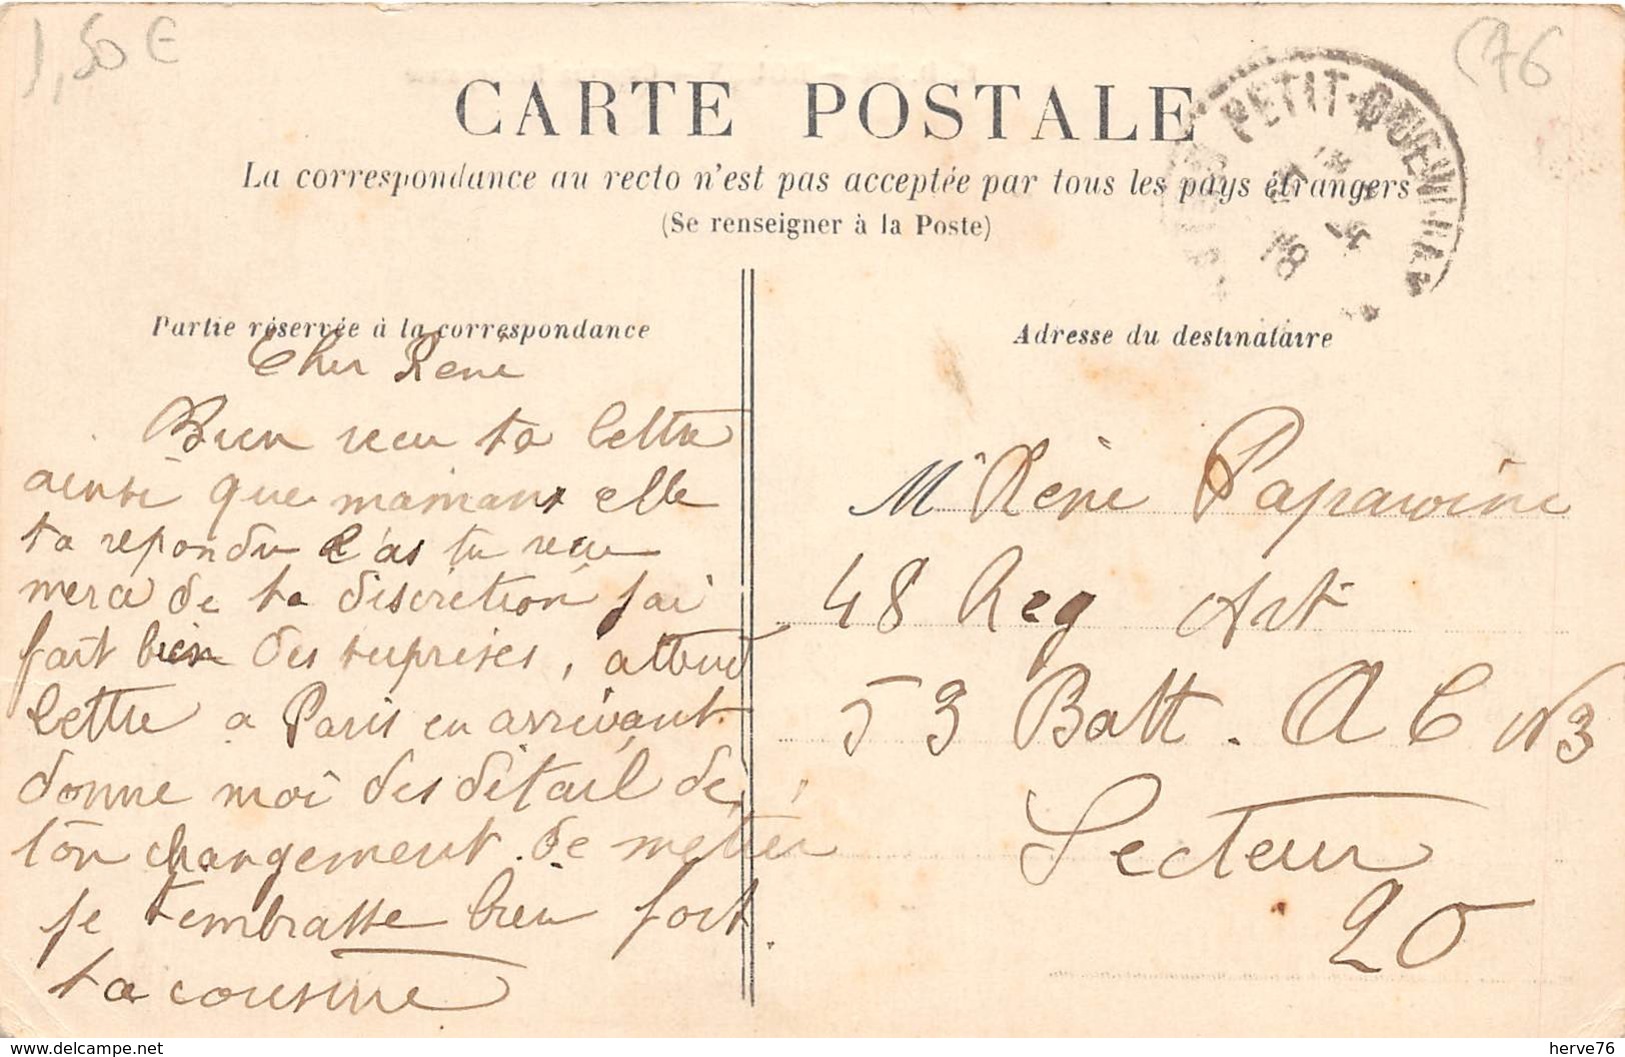 1,50 €
C76
CARTE POSTALE
La correspondance au recto n'est pas acceptée par tous les pays étrangers
(Se renseigner à la Poste)
PETIT-QUEVILLY
18
Partie réservée à la correspondance
Cher Rene
Bien recu ta lettre
ainsi que maman elle
ta repondu l'as tu recu
merci de ta discretion j'ai
fait bien des suprises, attend
lettre a Paris en arrivant
donne moi des détail de
ton changement de metier
je t'embrasse bien fort
ta cousine
Adresse du destinataire
Mr Réné Papawine
48 Reg Art
53 Batt. A C N3
Secteur
20
© delcampe.net
herve76